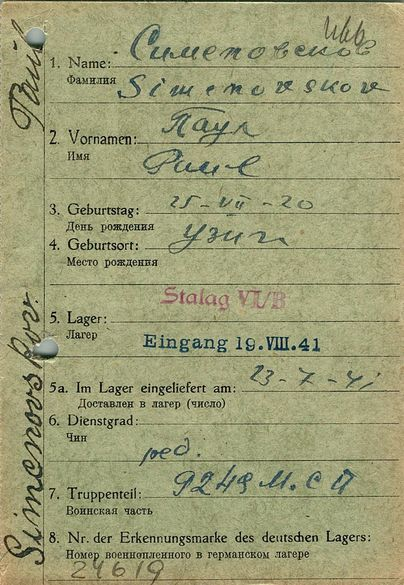 1. Name: Сименовсков
Фамилия Simenovskov
2. Vornamen: Паул
Имя
3. Geburtstag: 25-VII-20
День рождения
4. Geburtsort: Узин
Место рождения
Stalag VI/B
5. Lager:
Лагер
Eingang 19. VIII. 41
5a. Im Lager eingeliefert am: 23-7-41
Доставлен в лагер (число)
6. Dienstgrad:
Чин ряд.
7. Truppenteil: 9249 М.С П
Воинская часть
8. Nr. der Erkennungsmarke des deutschen Lagers:
Номер военнопленного в германском лагере
24619